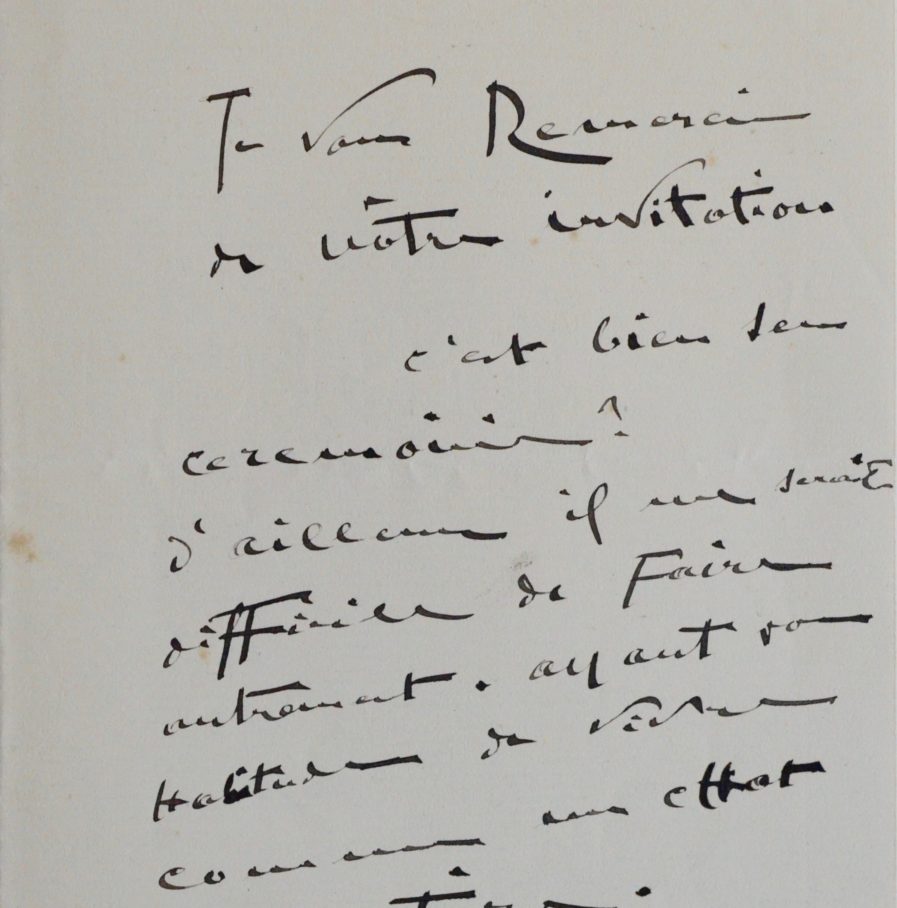 Je vous Remercie
de vôtre invitation
c'est bien sen
ceremonie?
d'ailleur il me serait
difficile de Faire
autrement. ayant
Habitude de vivre
comme un chat